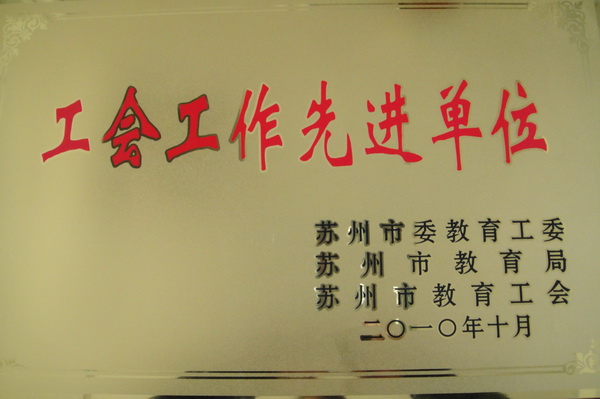 工会工作先进单位
苏州市委教育工委
苏州市教育局
苏州市教育工会
二〇一〇年十月